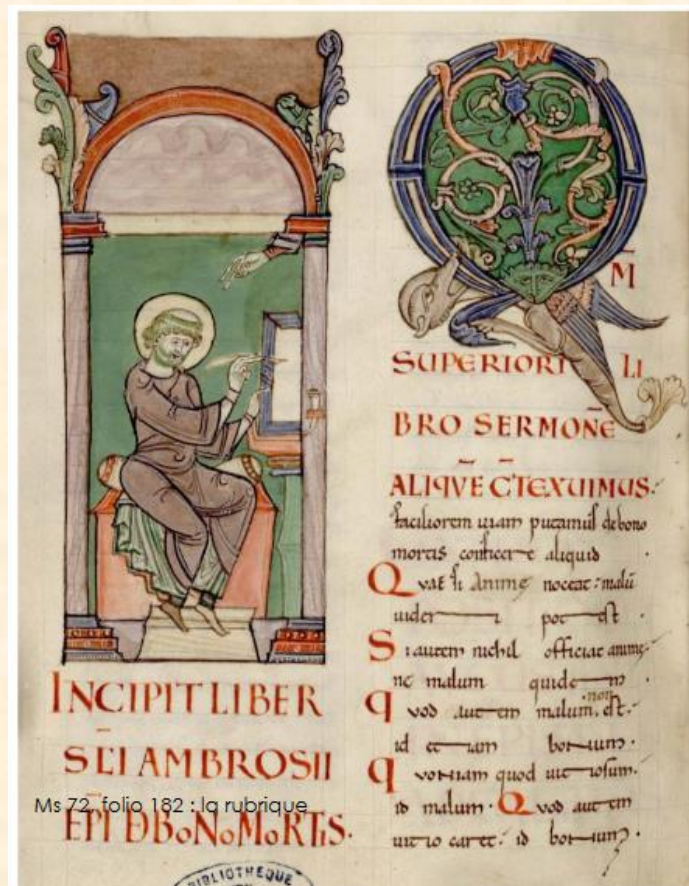 INCIPIT LIBER
SC̄I AMBROSII
Ms 72, folio 182 : la rubrique
EPĪ D BONO MORTIS.
BIBLIOTHEQUE
Q
M̄
SUPERIORI LI
BRO SERMONĒ
ALIQVĒ C̄TEXUIMUS.
faciliorem uiam putamuſ de bono
mortis conficere aliquid .
Quae ſi Animę noceat: malū
uideri potest
Si autem nichil officiat animę:
nc malum quidem
quod autem malum non est:
id etiam bonum.
quoniam quod uitiosum.
id malum. Quod autem
uitio caret: id bonum.